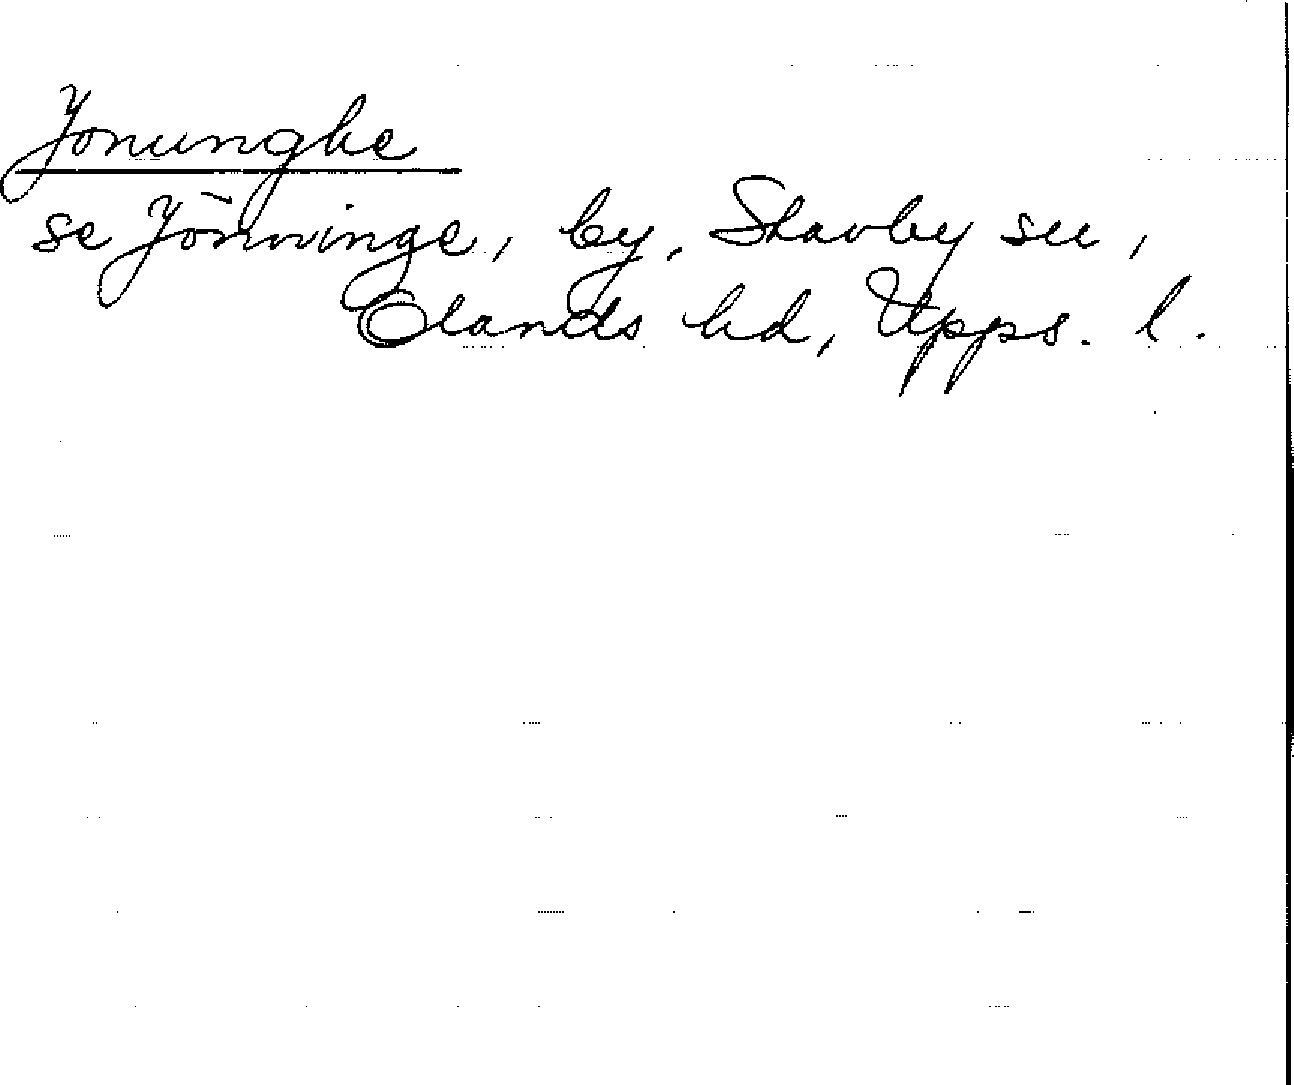 Jonunghe
se Jönninge, by, Stavby sn,
Olands hd, Upps. l.